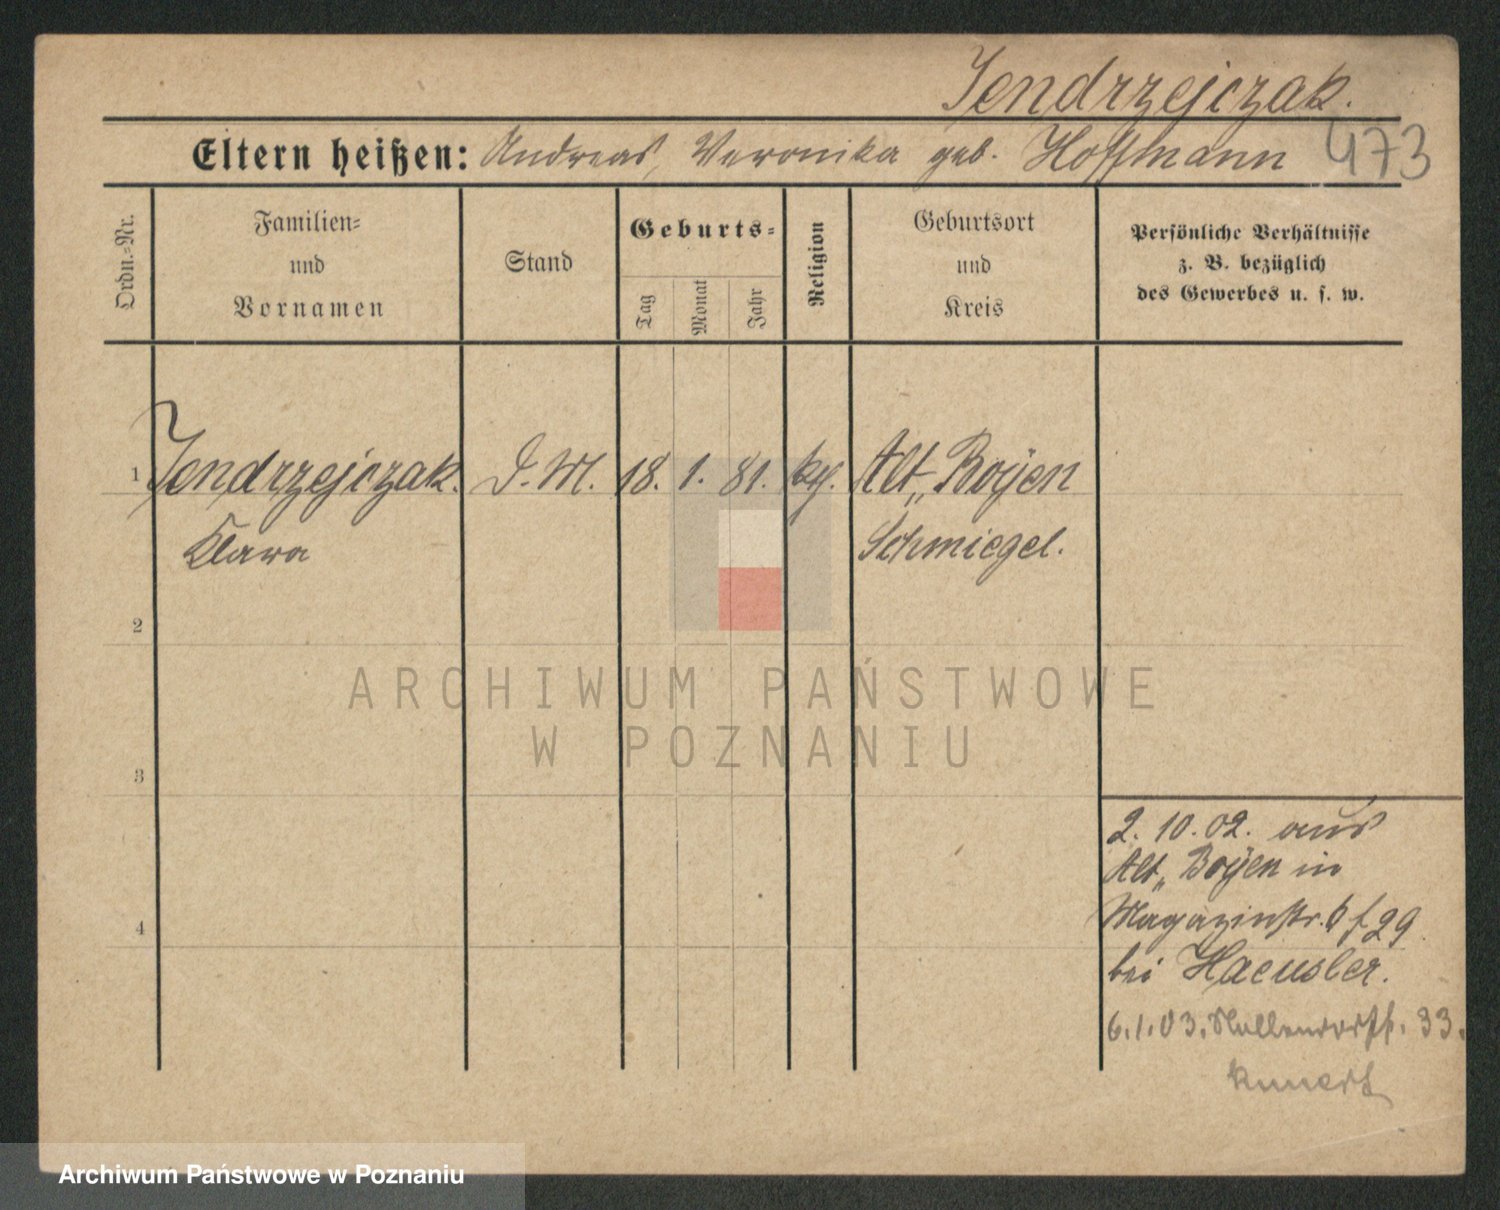 Jendrzejczak.
Eltern heißen: Andreas, Veronika geb. Hoffmann 473
Ordn.=Nr.
Familien=
und
Vornamen
Stand
Geburts=
Tag
Monat
Jahr
Religion
Geburtsort
und
Kreis
Persönliche Verhältnisse
z. B. bezüglich
des Gewerbes u. s. w.
1 Jendrzejczak. D. M. 18. 1. 81. kth. Alt„ Boÿen
Klara Schmiegel.
2
3
4
2. 10. 02. aus
Alt„ Boÿen in
Magazinstr. 6 f 29
bei Haeusler.
6. 1. 03. 33.
ARCHIWUM PAŃSTWOWE
W POZNANIU
Archiwum Państwowe w Poznaniu